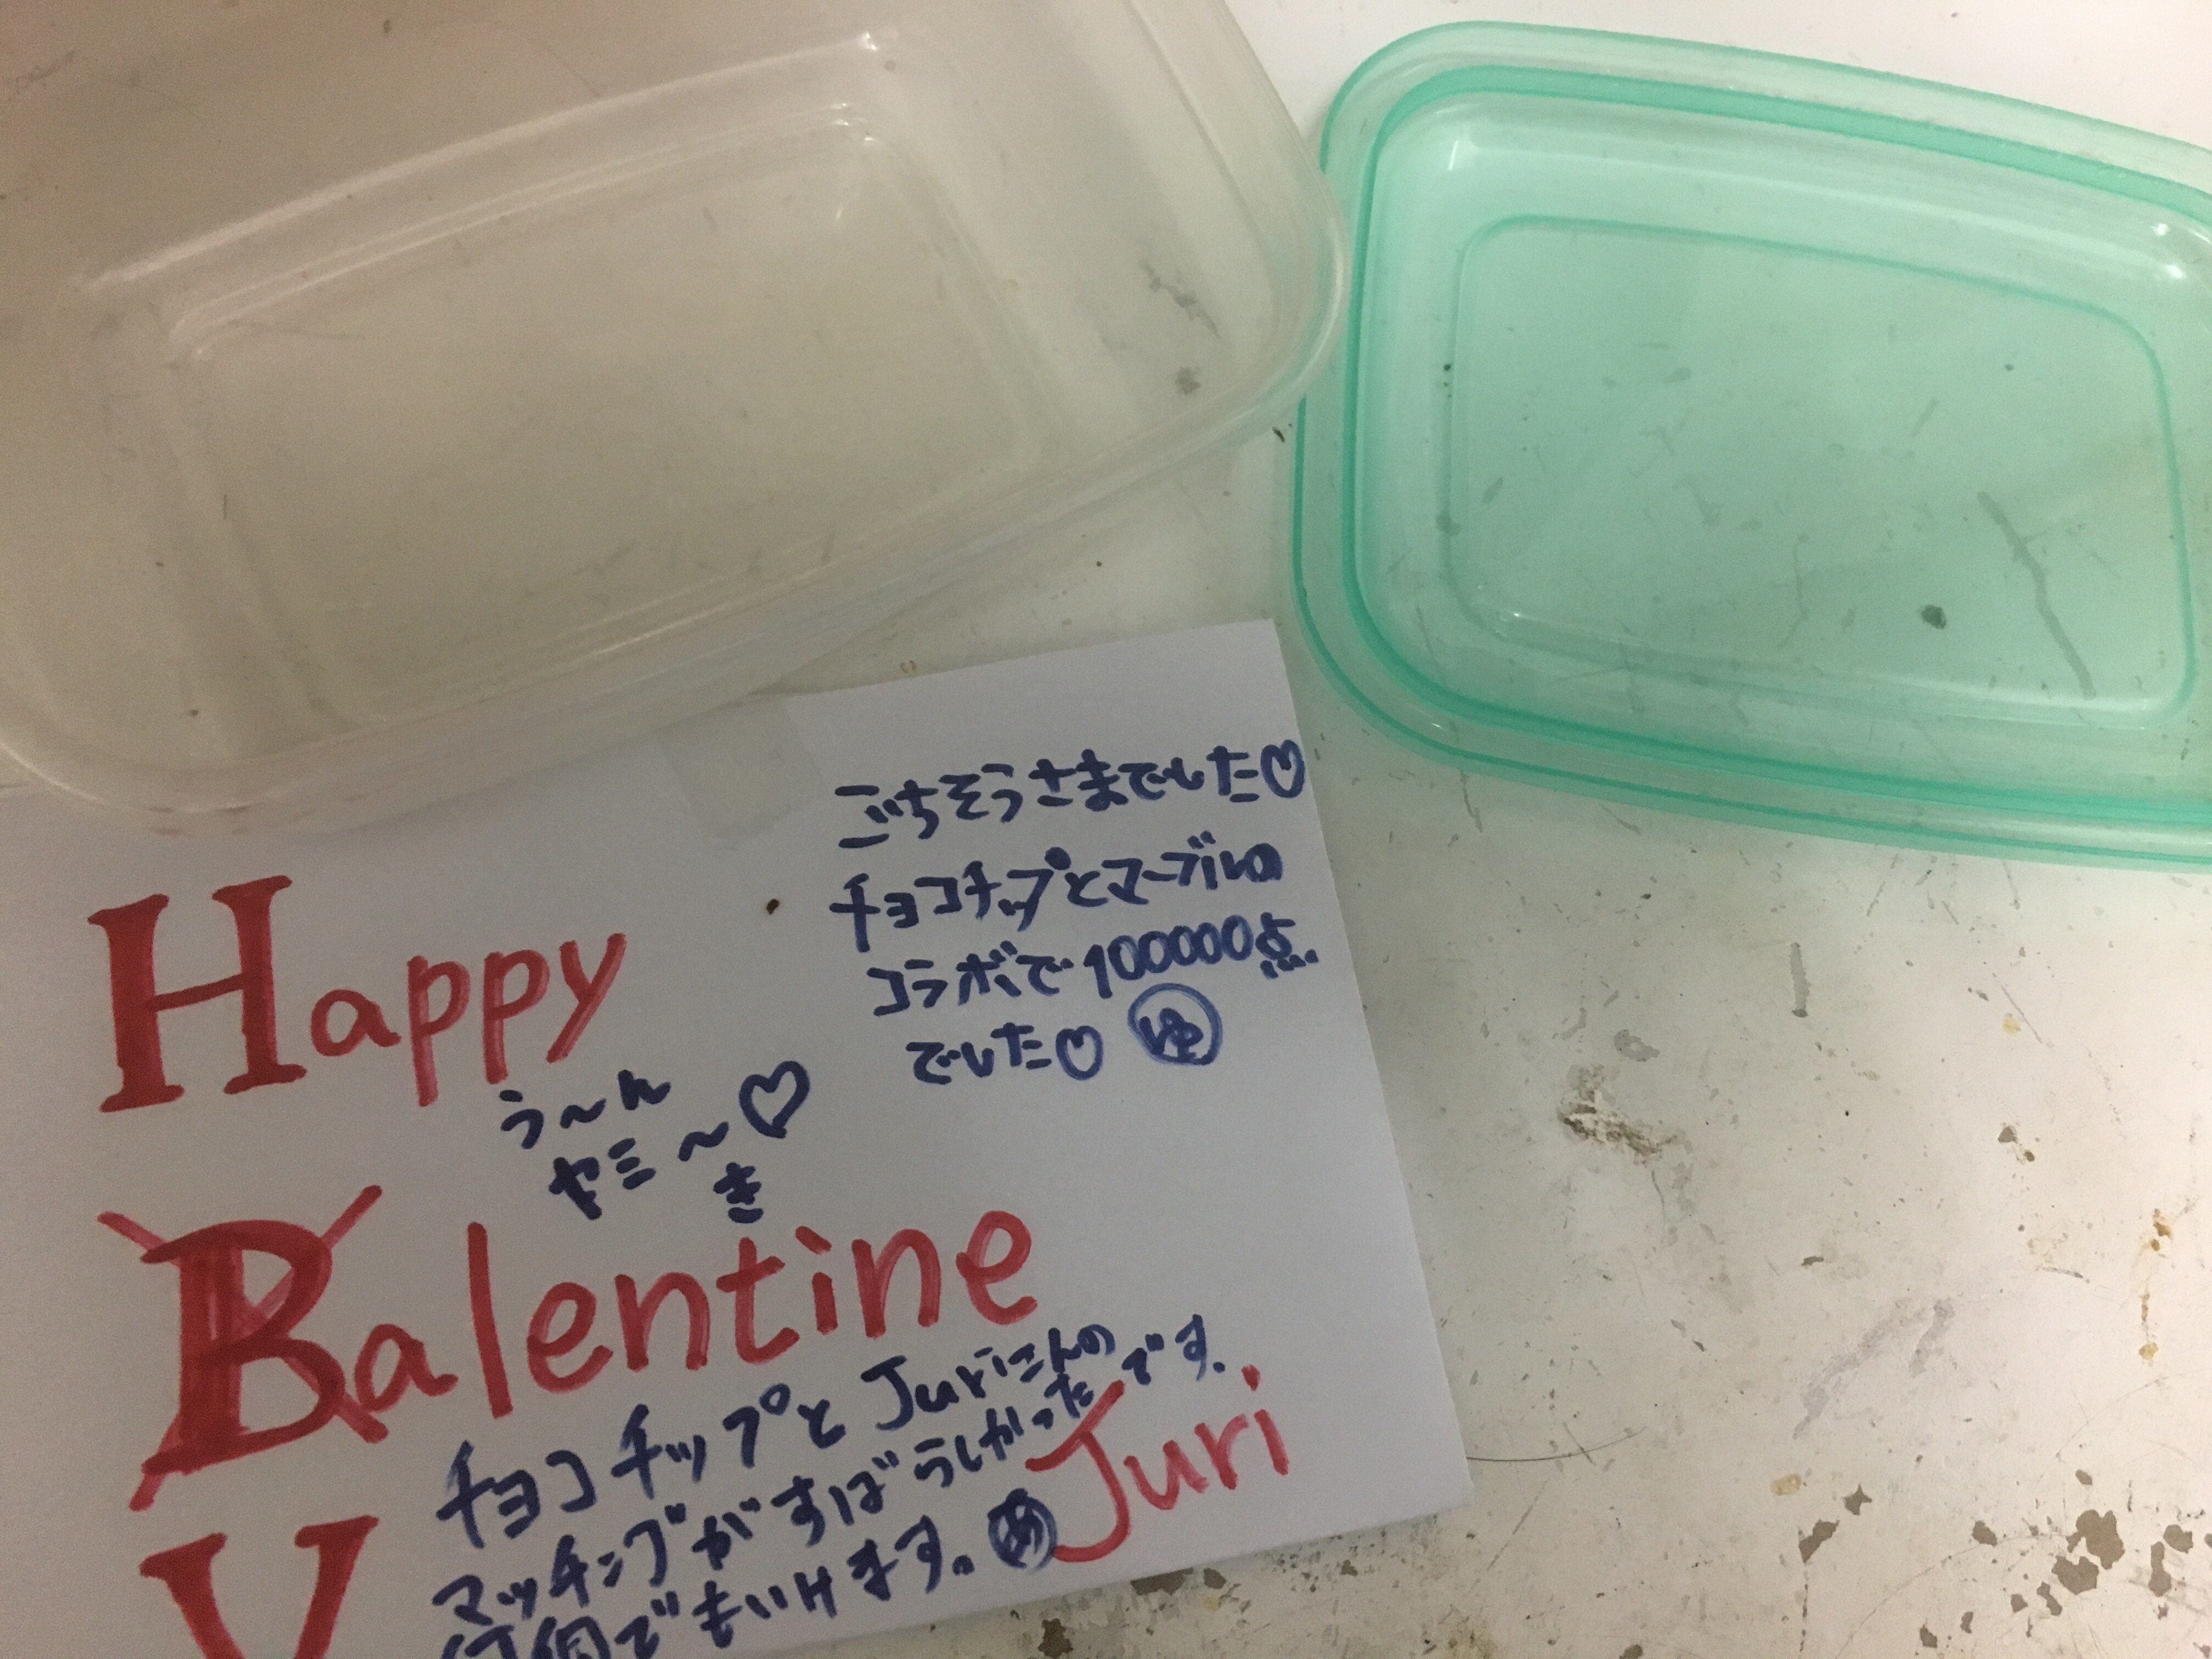 ごちそうさまでした♡
チョコチップとマーブルの
コラボで100000点
でした♡ ゆ
Happy
う〜ん
ヤミ〜♡
き
Balentine
チョコチップとJuriさんの
マッチングがすばらしかったです。
何個でもいけます。め
Juri
V